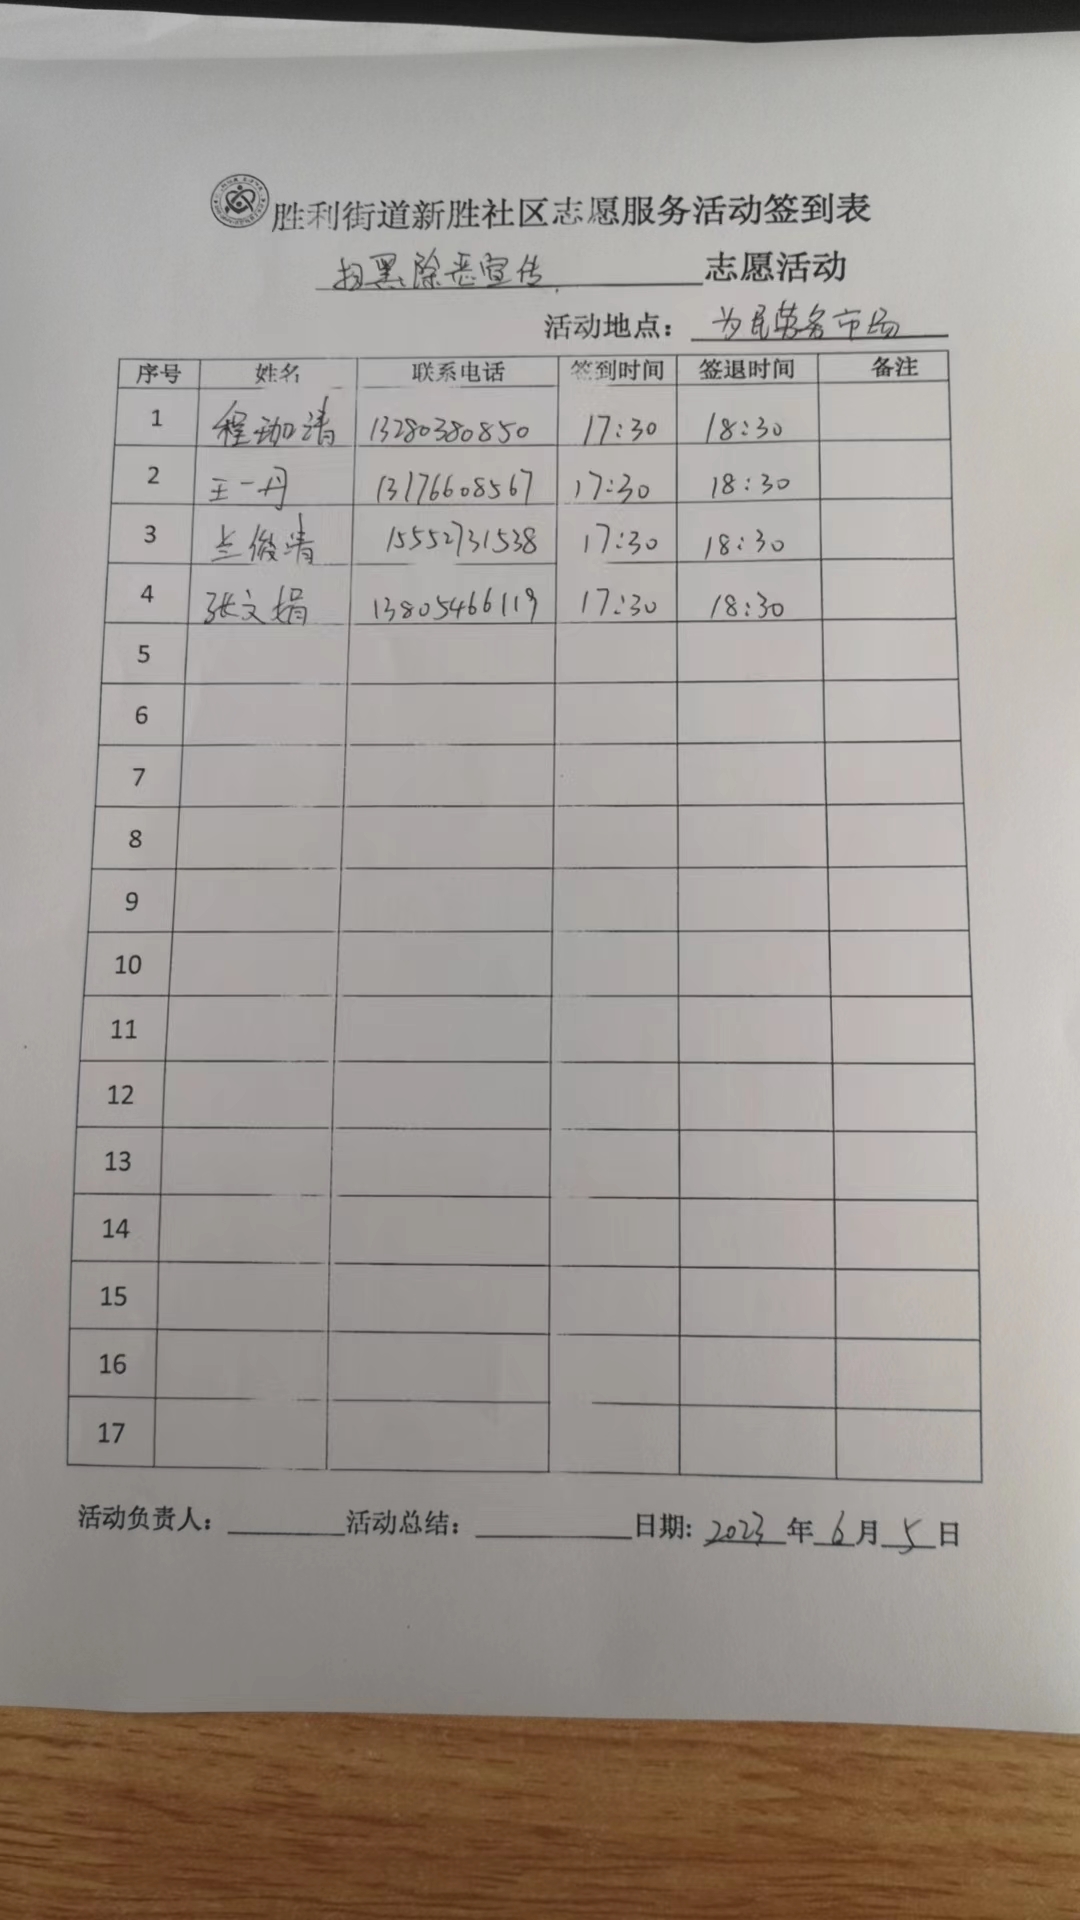 胜利街道新胜社区志愿服务活动签到表
扫黑除恶宣传 志愿活动
活动地点: 为民劳务市场
序号 姓名 联系电话 签到时间 签退时间 备注
1 程珈清 13280380850 17:30 18:30
2 王一丹 13176608567 17:30 18:30
3 兰俊清 15552731538 17:30 18:30
4 张文娟 13805466119 17:30 18:30
5
6
7
8
9
10
11
12
13
14
15
16
17
活动负责人: 活动总结: 日期: 2023 年 6 月 5 日